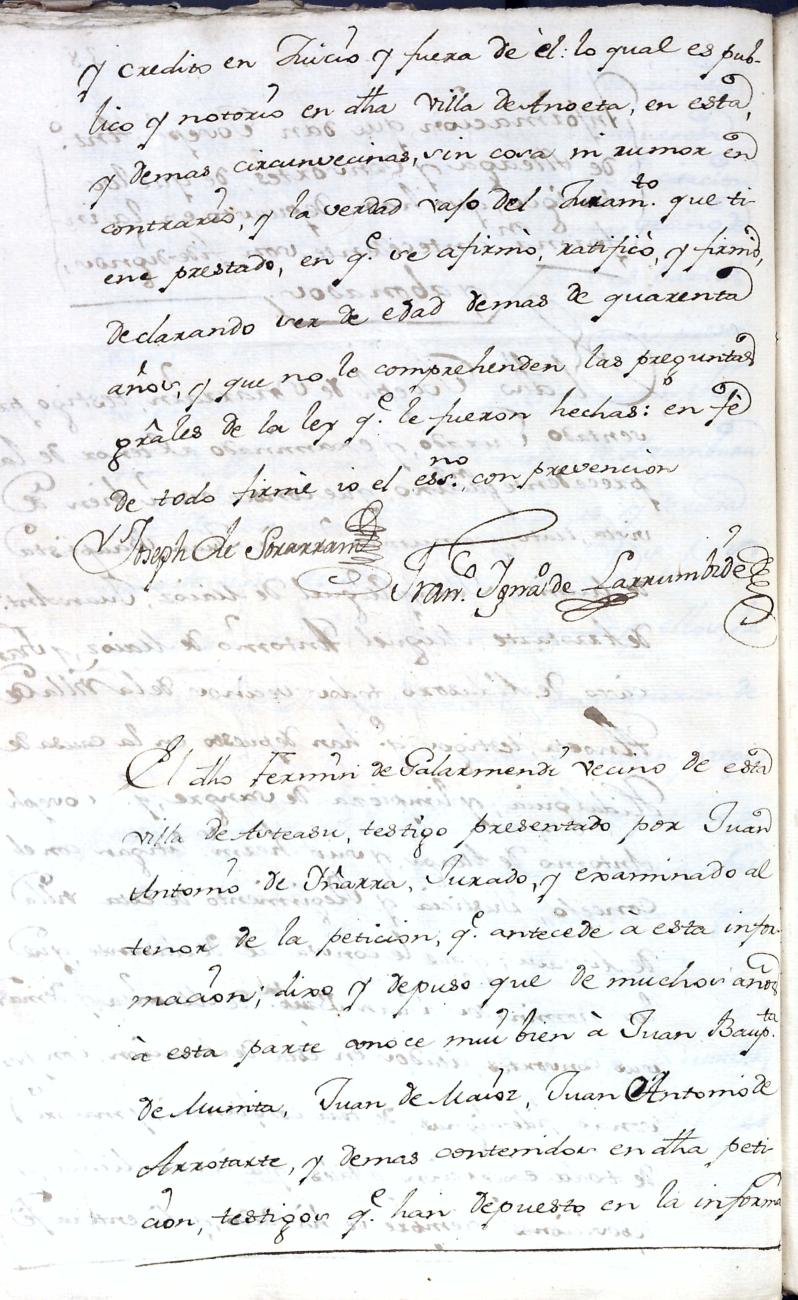 y credito en Juicio y fuera de èl: lo qual es pub-
lico y notorio en dha villa de Anoeta, en esta,
y demas circunvecinas, sin cosa ni rumor en
contrario, y la verdad vajo del Juramto. que ti-
ene prestado, en qe. se afirmò, ratificò, y firmò,
declarando ser de edad demas de quarenta
años, y que no le comprehenden las preguntas
grâles de la ley qe. le fueron hechas: en fè
de todo firmè io el essno., con prevencion
Joseph de Sorarrain
Franco. Ignao. de Larrumbide
El dho Fermin de Galarmendi vecino de esta
villa de Asteasu, testigo presentado por Juan
Antonio de Yñarra, Jurado, y examinado al
tenor de la peticion, qe. antecede à esta infor-
macion; dixo y depuso que de muchos años
à esta parte conoce mui bien à Juan Baupta.
de Munita, Juan de Maioz, Juan Antonio de
Arrotarte, y demas contenidos en dha peti-
cion, testigos qe. han depuesto en la informa